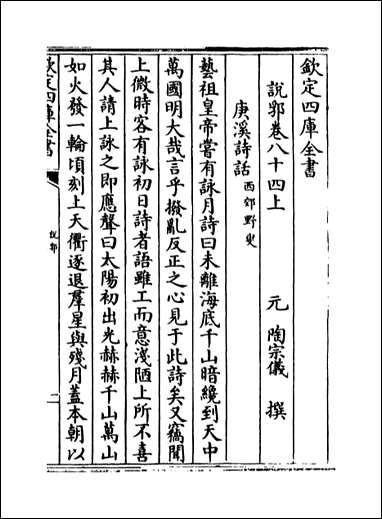 欽定四庫全書
說郛卷八十四上
元 陶宗儀 撰
庚溪詩話 西郊野叟
藝祖皇帝嘗有詠月詩曰未離海底千山暗纔到天中
萬國明大哉言乎撥亂反正之心見于此詩矣又竊聞
上微時客有詠初日詩者語雖工而意淺陋上所不喜
其人請上詠之即應聲曰太陽初出光赫赫千山萬山
如火發一輪頃刻上天衢逐退羣星與殘月蓋本朝以
欽定四庫全書
說郛
二